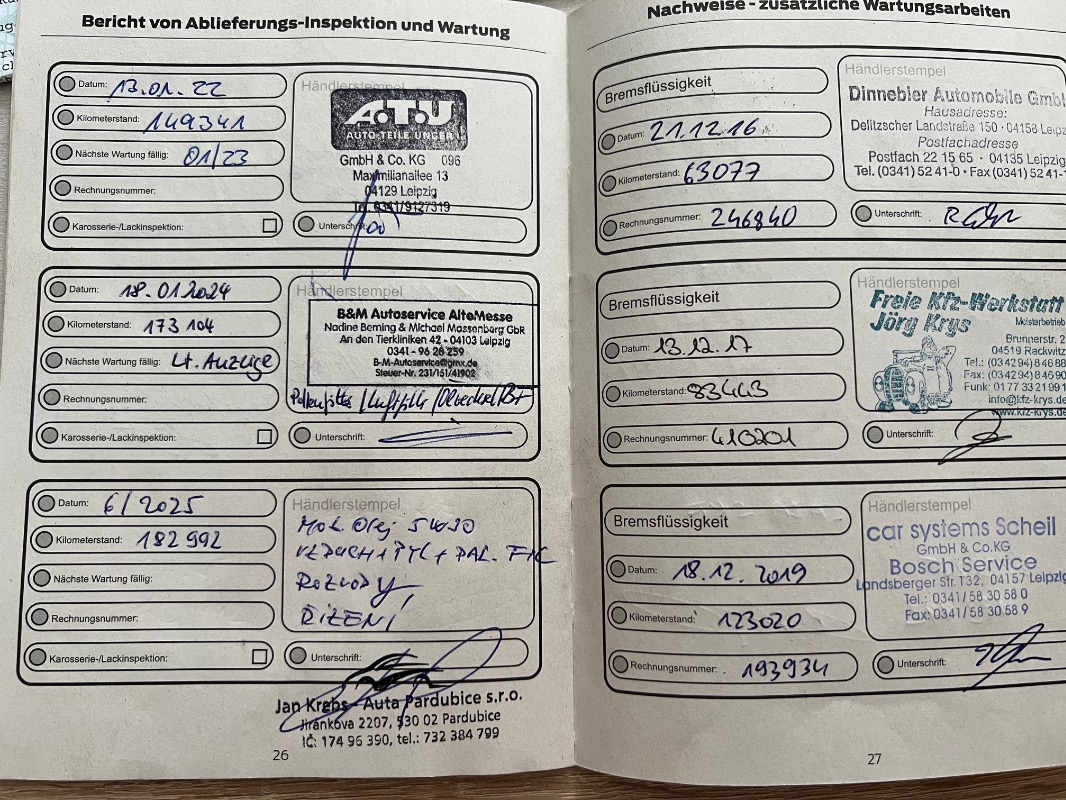 Bericht von Ablieferungs-Inspektion und Wartung
Datum: 13.01.22
Kilometerstand: 149341
Nächste Wartung fällig: 01/23
Rechnungsnummer:
Karosserie-/Lackinspektion:
Händlerstempel
A.T.U
AUTO-TEILE UNGER
GmbH & Co. KG 096
Maximilianallee 13
04129 Leipzig
Tel. 0341/9127319
Unterschrift:
Datum: 18.01.2024
Kilometerstand: 173 104
Nächste Wartung fällig: Lt. Anzeige
Rechnungsnummer:
Karosserie-/Lackinspektion:
Händlerstempel
B&M Autoservice AlteMesse
Nadine Berning & Michael Massenberg GbR
An den Tierkliniken 42 - 04103 Leipzig
0341 - 96 28 259
B-M-Autoservice@gmx.de
Steuer-Nr. 231/151/41902
Pollenfilter/Luftfilter/Ölwechsel/
Unterschrift:
Datum: 6/2025
Kilometerstand: 182 992
Nächste Wartung fällig:
Rechnungsnummer:
Karosserie-/Lackinspektion:
Händlerstempel
Mot. Olej 5W30
VZDUCH + PYL + PAL. FIL
ROZVODY,
ŘÍZENÍ
Unterschrift:
Jan Krebs - Auta Pardubice s.r.o.
Jiránkova 2207, 530 02 Pardubice
IČ: 174 96 390, tel.: 732 384 799
26
Nachweise - zusätzliche Wartungsarbeiten
Bremsflüssigkeit
Datum: 21.12.16
Kilometerstand: 63077
Rechnungsnummer: 246840
Händlerstempel
Dinnebier Automobile GmbH
Hausadresse:
Delitzscher Landstraße 150 · 04158 Leipz
Postfachadresse
Postfach 22 15 65 · 04135 Leipzig
Tel. (0341) 52 41-0 · Fax (0341) 52 41-
Unterschrift:
Bremsflüssigkeit
Datum: 13.12.17
Kilometerstand: 83443
Rechnungsnummer: 410201
Händlerstempel
Freie Kfz-Werkstatt
Jörg Krys
Meisterbetrieb
Brunnerstr. 2
04519 Rackwitz
Tel.: (034294) 84688
Fax: (034294) 84690
Funk: 0177 33 21 99 1
info@kfz-krys.de
www.kfz-krys.de
Unterschrift:
Bremsflüssigkeit
Datum: 18.12.2019
Kilometerstand: 123020
Rechnungsnummer: 193934
Händlerstempel
car systems Scheil
GmbH & Co.KG
Bosch Service
Landsberger Str. 132, 04157 Leipzig
Tel.: 0341/58 30 58 0
Fax: 0341/58 30 58 9
Unterschrift:
27